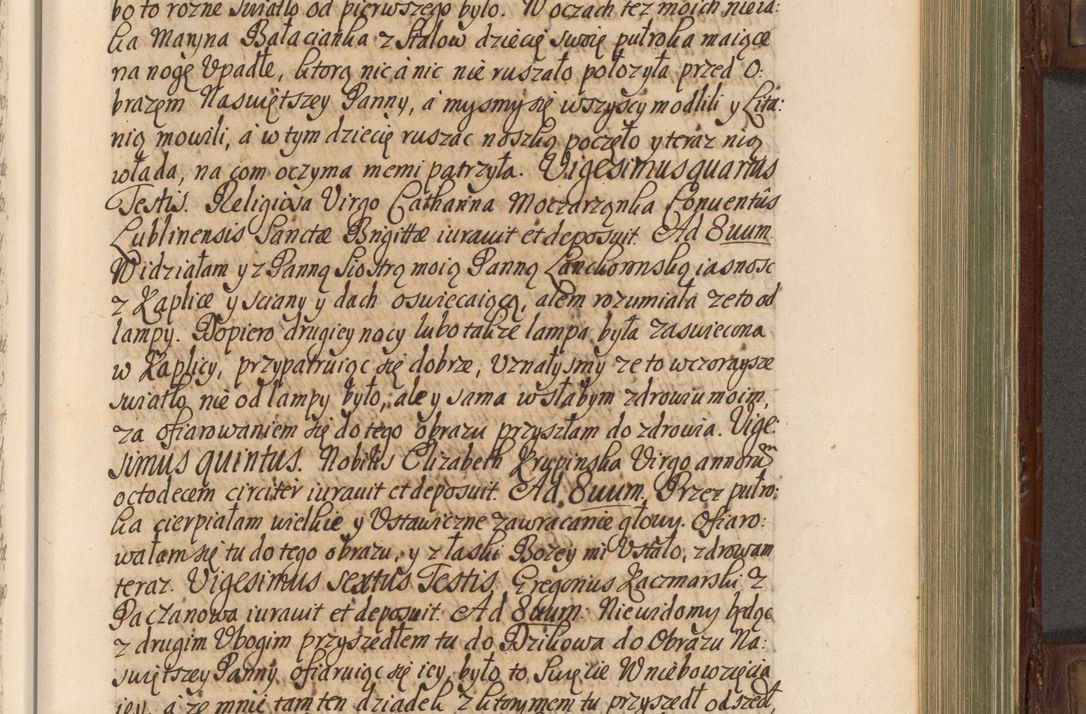 bo to rozne swiatło od pierwszego było. W oczach tez moich nieia:
ka Maryna Bałacianka z Stalow dziecię swoię pułroka maiące
na nogę Upadłe, ktorą nic á nic nie ruszało połozyła przed O:
brazem Naswiętszey Panny, á mysmy się wszyscy modlili y Lita:
nią mowili, á w tym dziecię ruszac noszką poczęło y teraz nią
włada, na com oczyma memi patrzyła. Vigesimus quartus
Testis. Religiosa Virgo Catharina Moczarzanka Conventûs
Lublinensis Sanctæ Brigittæ iuravit et deposuit. Ad 8uum
Widziałam y z Panną Siostrą moią Panną Lanckorunską iasnosc
z Kaplice y sciany y dach oswiecaiącą, alem rozumiała ze to od
lampy. Dopiero drugiey nocy lubo takze lampa była zaswiecona
w Kaplicy, przypatruiąc się dobrze, Uznałysmy ze to wczoraysze
swiatło nie od lampy było, ale y sama w słabym zdrowiu moim,
za ofiarowaniem się do tego obrazu przyszłam do zdrowia. Vige:
simus quintus. Nobilis Elizabeth Krupinska Virgo annorũ
octodecem circiter iuravit et deposuit. Ad 8uum. Przez pułro:
ka cierpiałam wielkie y Ustawiczne zawracanie głowy. Ofiaro:
wałam się tu do tego obrazu, y z łaski Bozey mi Ustało, zdrowam
teraz. Vigesimus sextus Testis. Gregorius Kaczmarski z
Paczanowa iuravit et deposuit. Ad 8uum. Niewidomy będąc
z drugim Ubogim przyszedłem tu do Dzikowa do Obrazu Na:
swiętszey Panny, ofiaruiąc się iey, było to Swięcie Wniebowzięcia
iey, á ze mnie tam ten dziadek z ktorymem tu przyszedł odszedł,